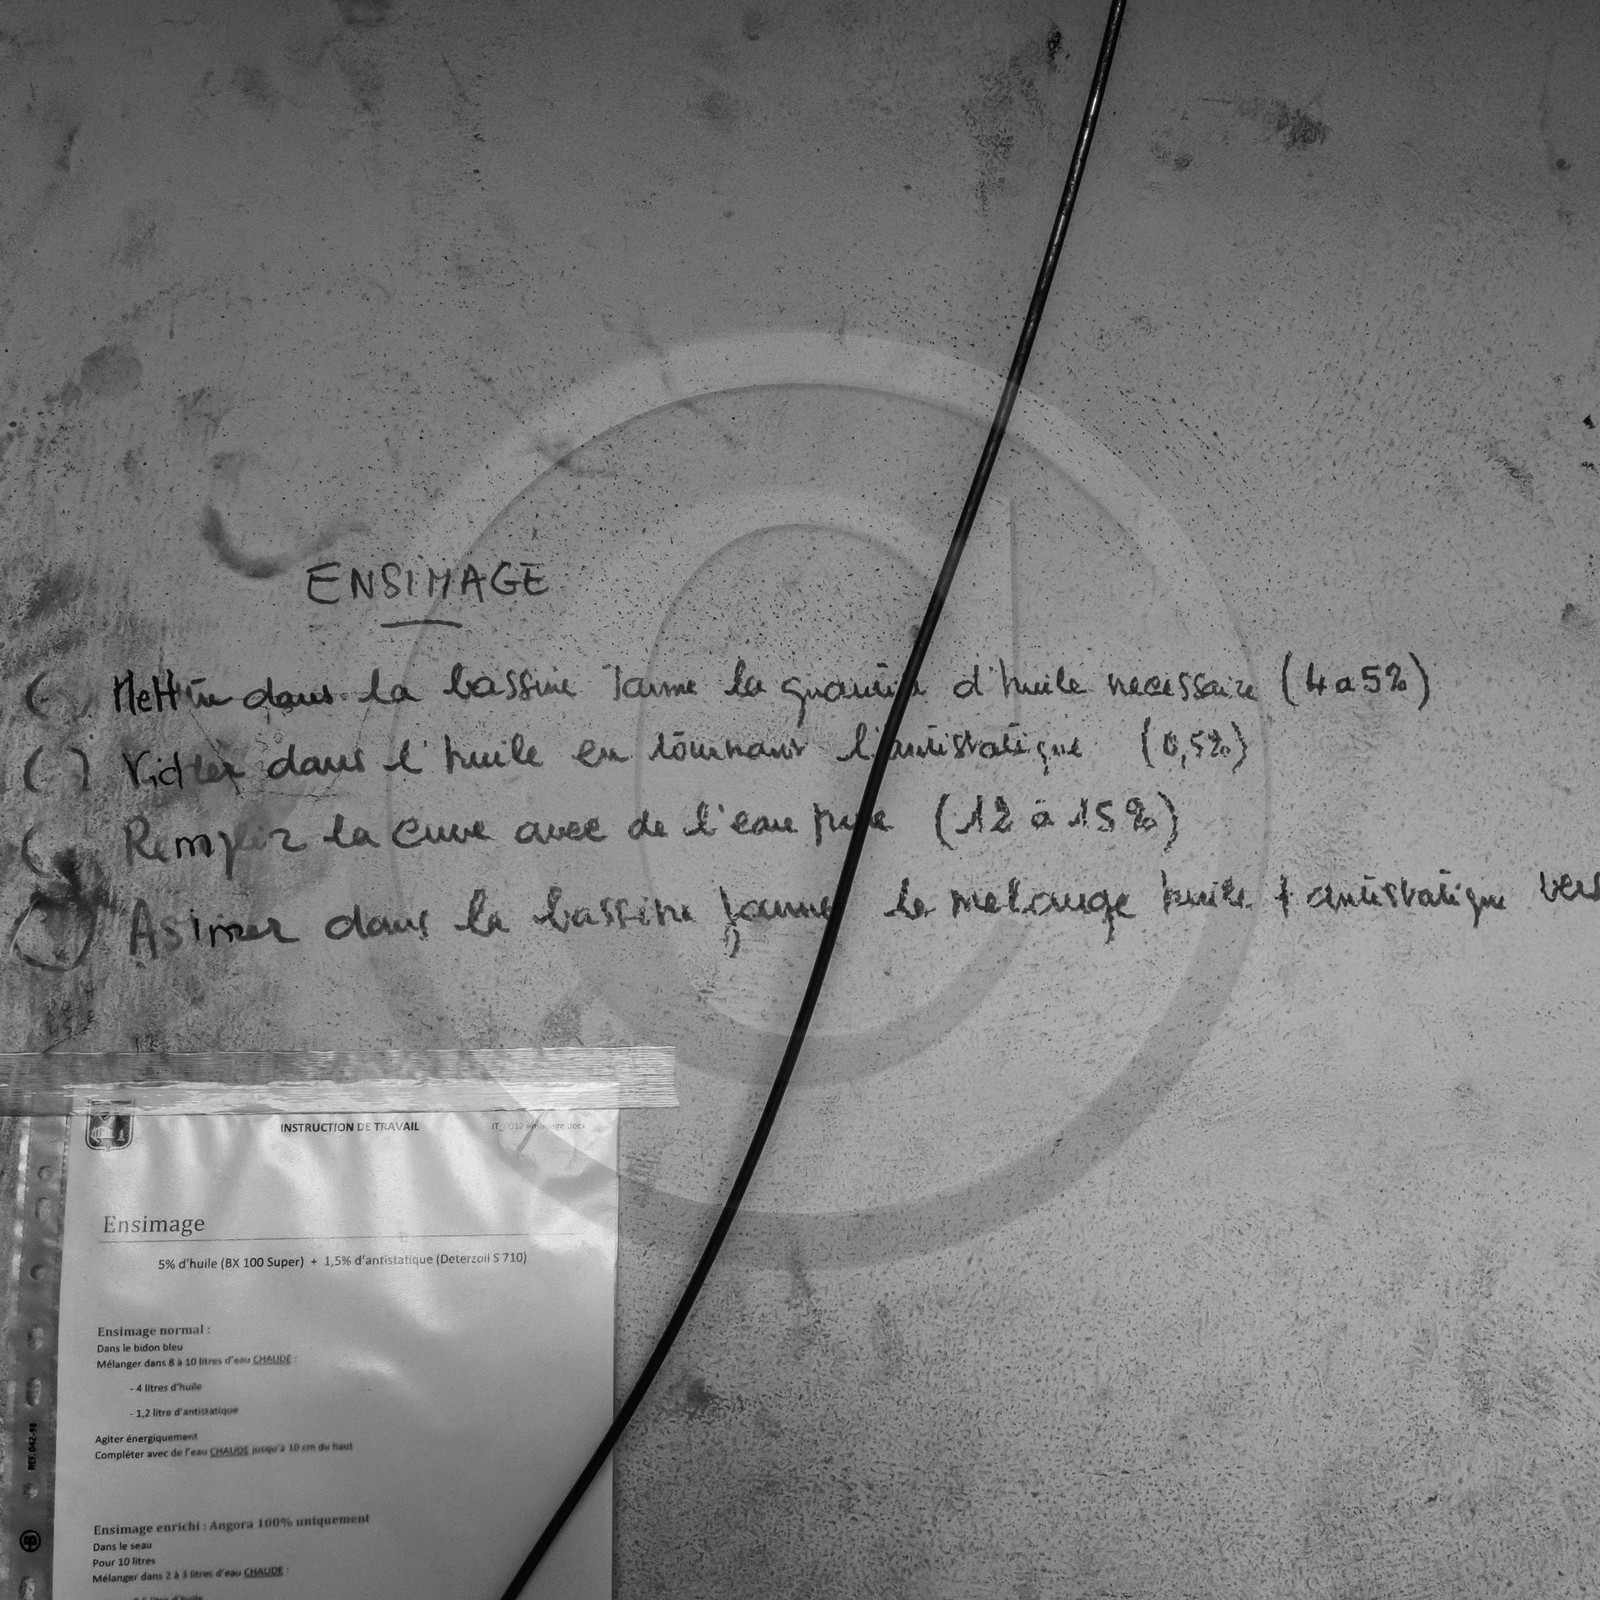 ENSIMAGE
Mettre dans la bassine Jaune la quantité d'huile necessaire (4 a 5%)
Vider dans l'huile en tournant l'antistatique (0,5%)
Remplir la cuve avec de l'eau pure (12 à 15%)
Asirer dans la bassine Jaune le melange huile + antistatique vers
INSTRUCTION DE TRAVAIL
Ensimage
5% d'huile (BX 100 Super) + 1,5% d'antistatique (Deterzoil S 710)
Ensimage normal :
Dans le bidon bleu
Mélanger dans 8 à 10 litres d'eau CHAUDE :
- 4 litres d'huile
- 1,2 litre d'antistatique
Agiter énergiquement
Compléter avec de l'eau CHAUDE jusqu'à 10 cm du haut
REF. 042-18
Ensimage enrichi : Angora 100% uniquement
Dans le seau
Pour 10 litres
Mélanger dans 2 à 3 litres d'eau CHAUDE :